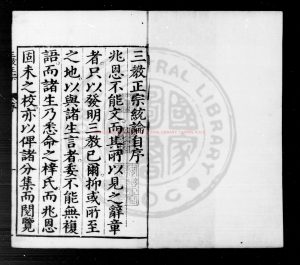 三教正宗統論自序
兆恩不能文而其所以見之辭章
者只以發明三教已爾抑或所至
之地以與諸生言者委不能無複
語而諸生乃悉命之梓氏而兆恩
固未之校亦以俾諸分集而閱覽